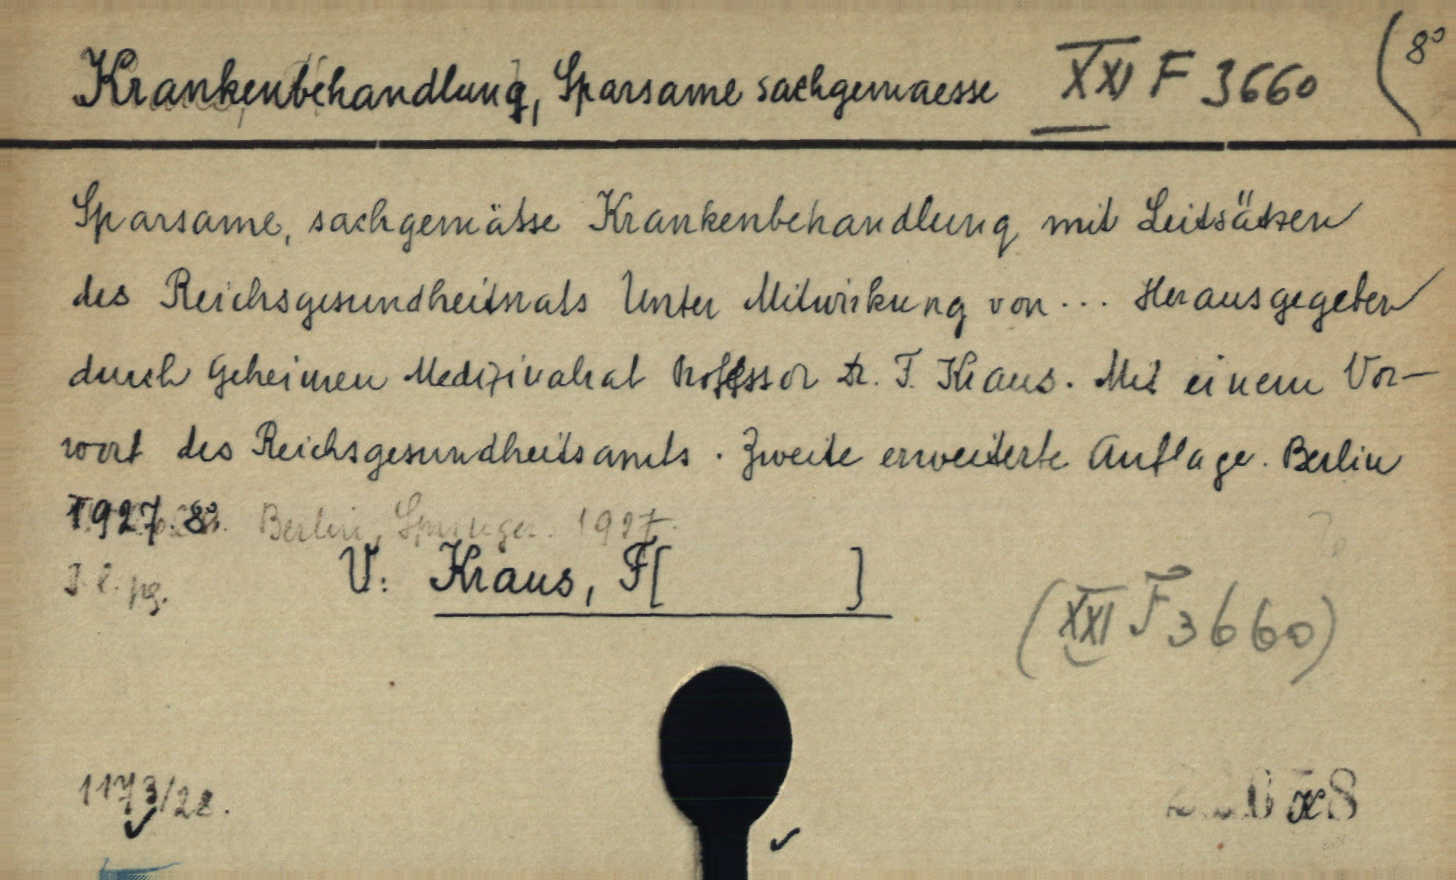 Krankenbehandlung, Sparsame sachgemaesse XXI F 3660 (8°
Sparsame, sachgemässe Krankenbehandlung mit Leitsätzen
des Reichsgesundheitsrats Unter Mitwirkung von ... Herausgegeben
durch Geheimen Medizinalrat Professor Dr. F. Kraus. Mit einem Vor-
wort des Reichsgesundheitsamts. Zweite erweiterte Auflage. Berlin
1927. 8°. Berlin, Springer. 1927.
V: Kraus, F[ ]
(XXI F 3660)
1173/28.